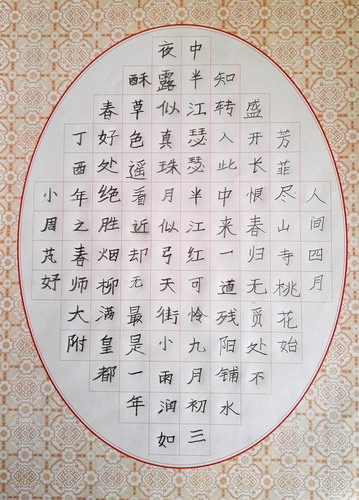 人间四月
芳菲尽山寺桃花始
盛开长恨春归无觅处不
知转入此中来一道残阳铺水
中半江瑟瑟半江红可怜九月初三
夜露似真珠月似弓天街小雨润如
酥草色遥看近却无最是一年
春好处绝胜烟柳满皇都
丁酉年之春师大附
小周芃妤